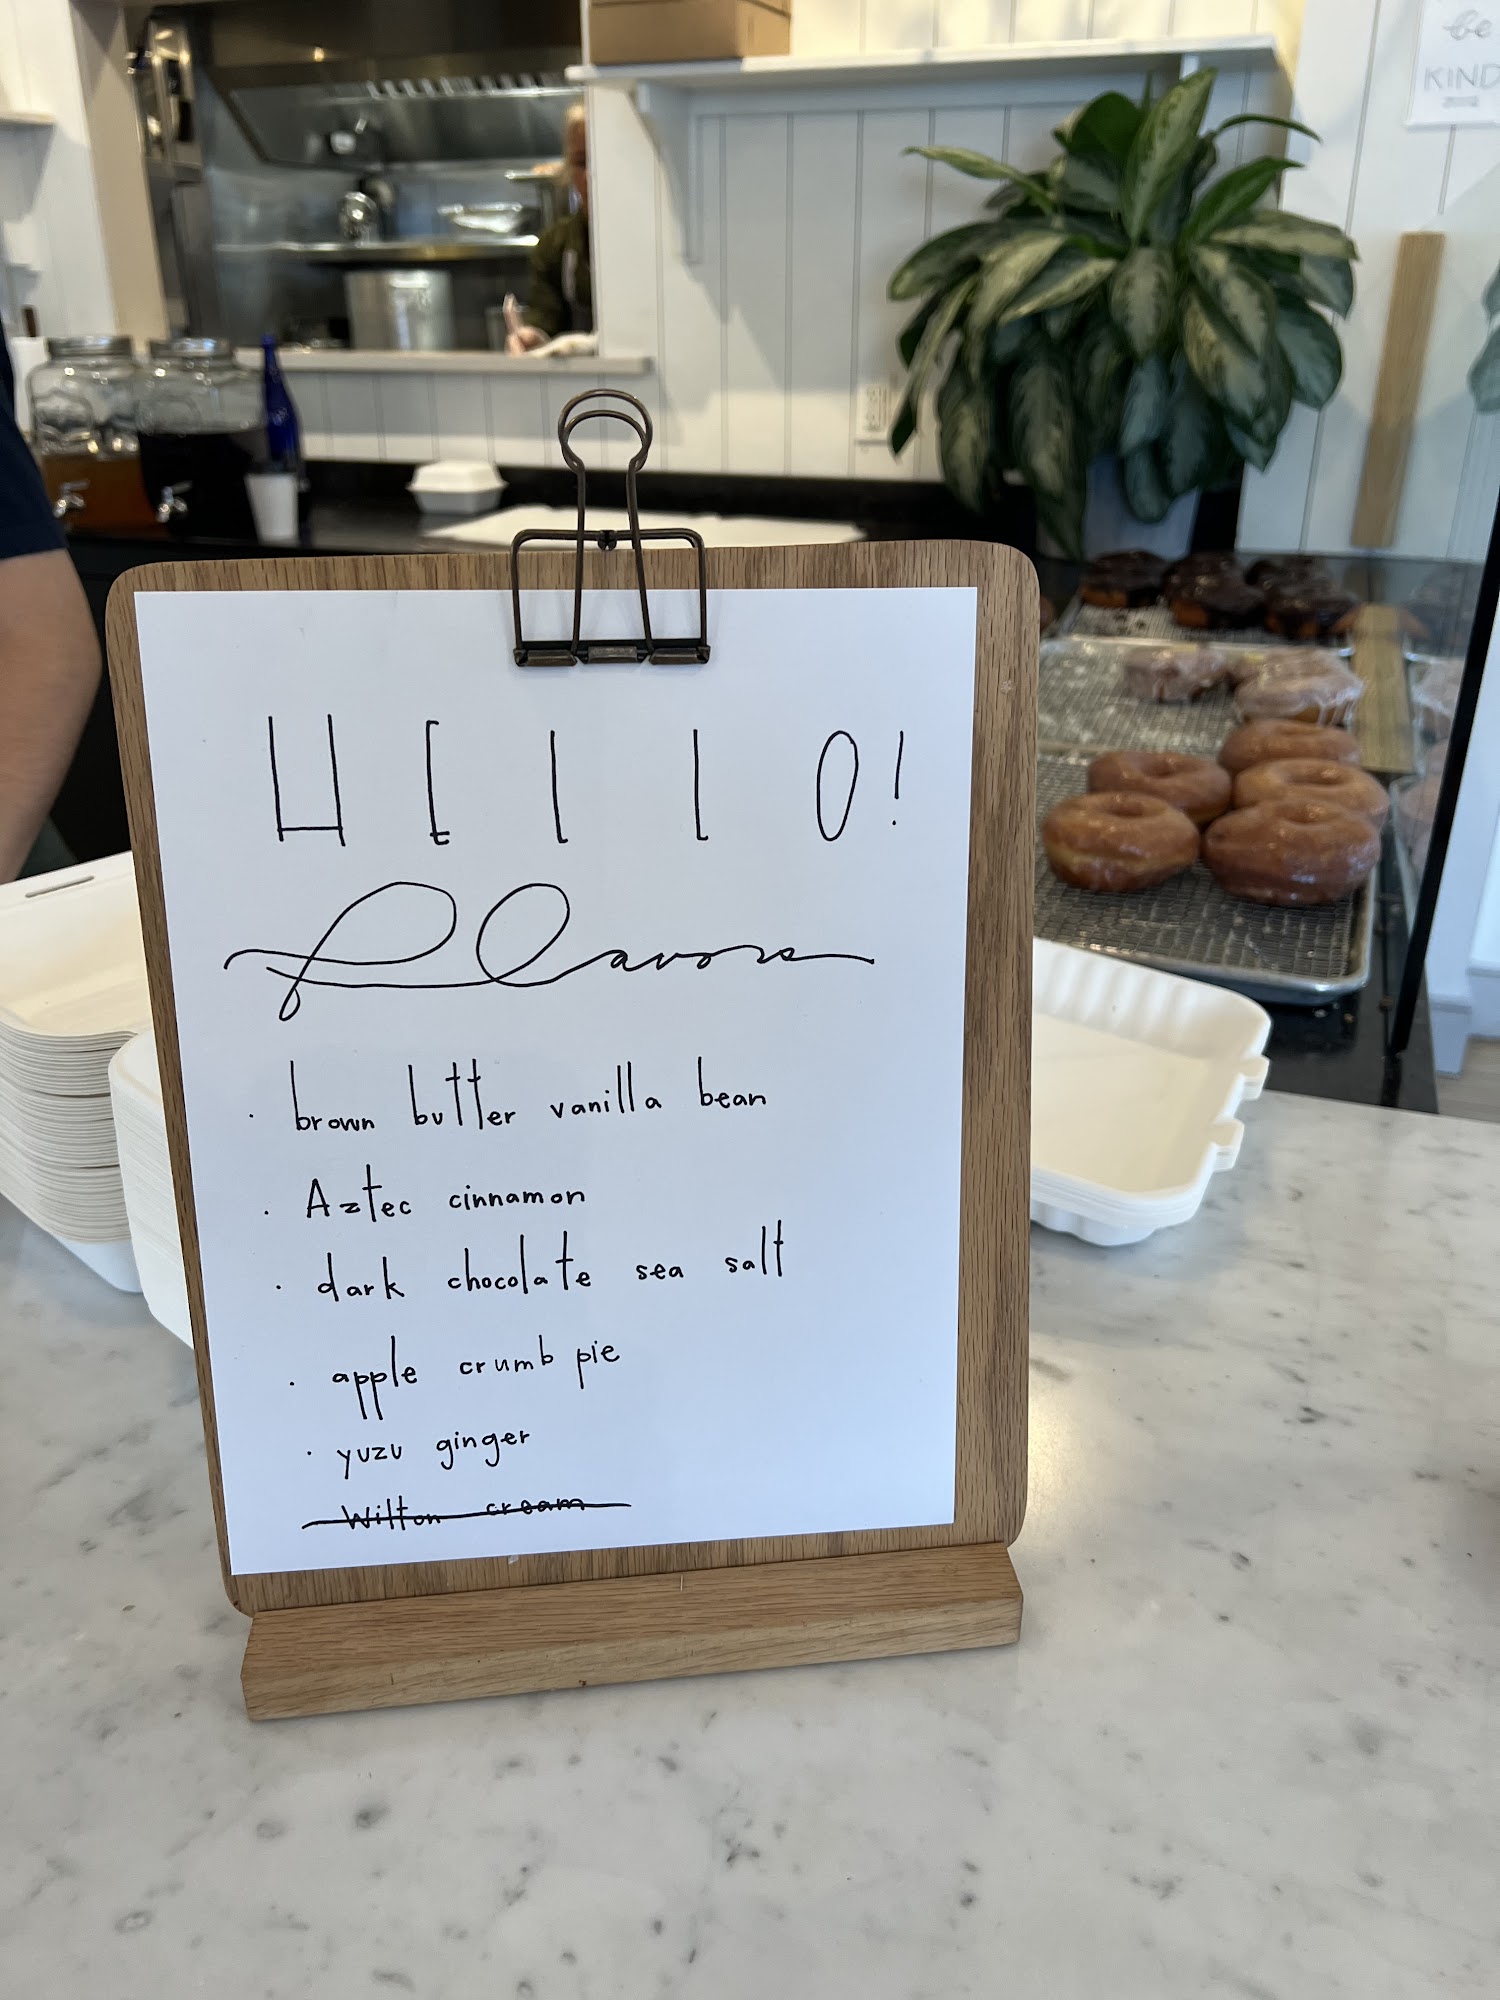 be
KIND
HELLO!
flavors
· brown butter vanilla bean
· Aztec cinnamon
· dark chocolate sea salt
· apple crumb pie
· yuzu ginger
Wilton cream